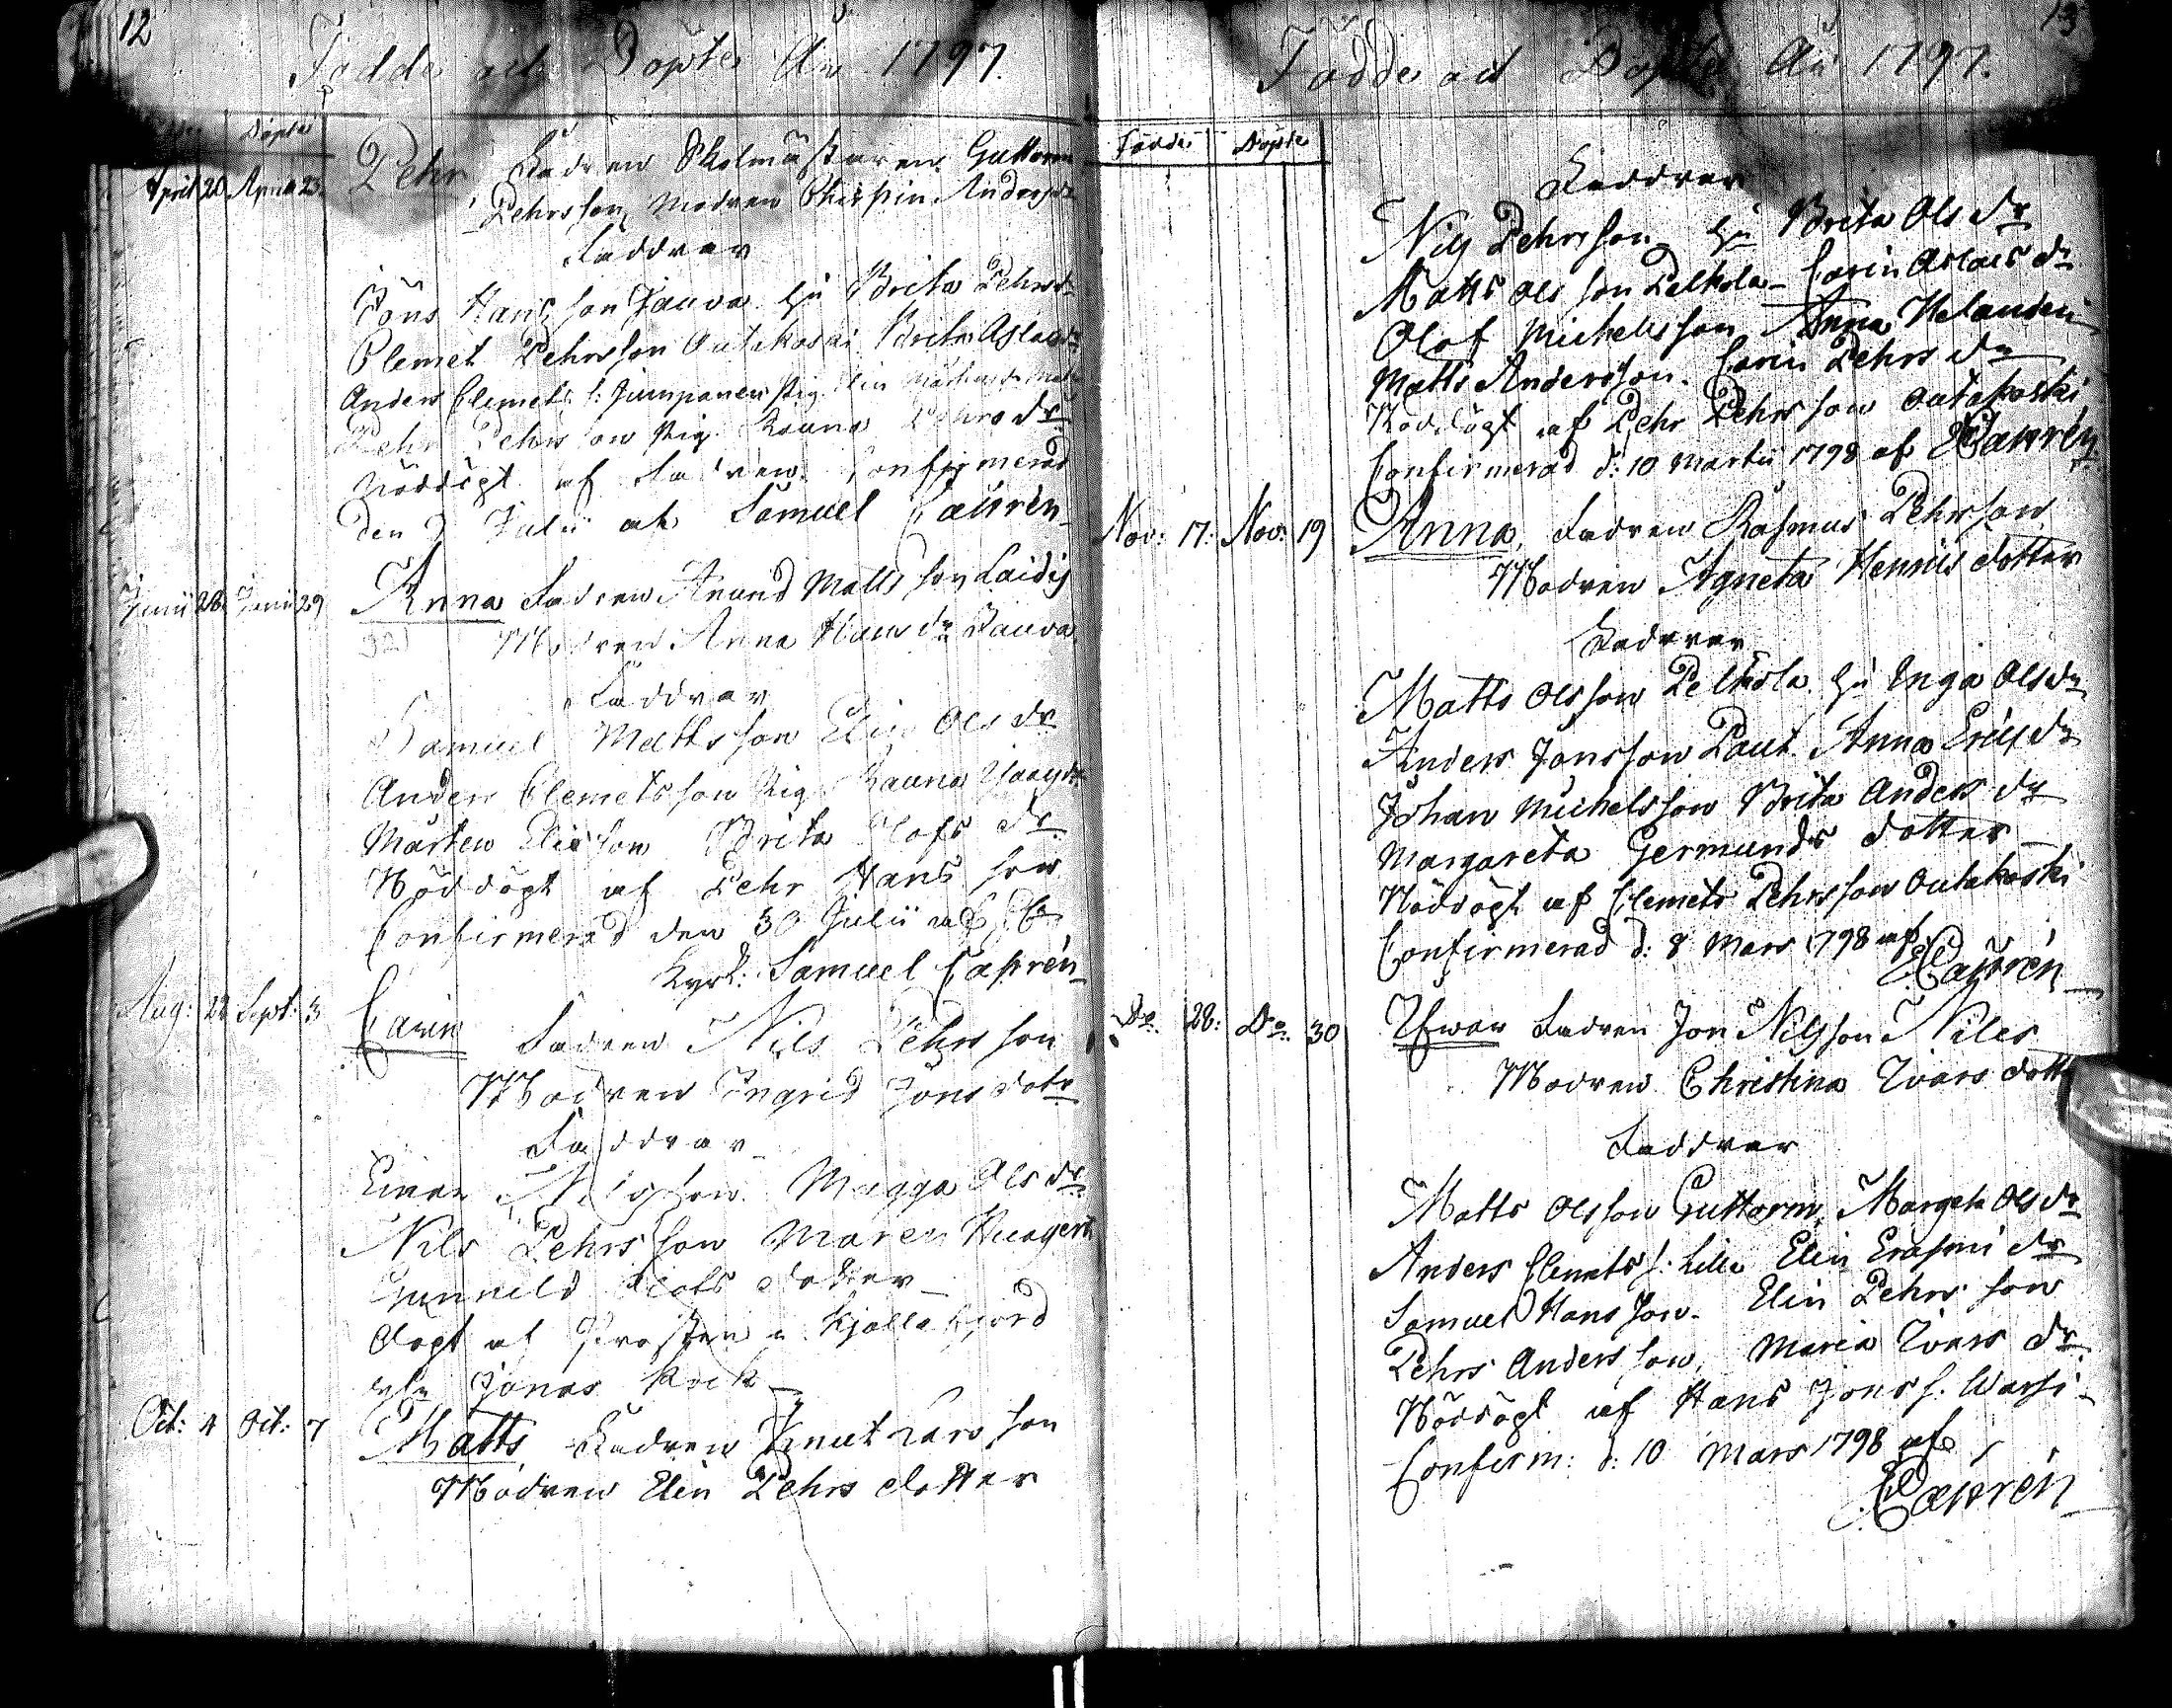 12
Födde och Döpte År 1797.
Döpte
April 20 April 23 Pehr, Fadren Skolmästaren Guttorm
Pehrsson, Modren Kirstin Andersdr
Faddrar
Jöns Hansson Jauva Hu Brita Pehrsdr
Clemet Pehrsson Outakoski Brita Aslacdr
Anders Clemets s: Pig. Elin
Pehr Pehrsson Pig. Rauna Pehrsdr
Nöddögt af Fadren. Confirmerad
den 9 Julii af Samuel Castrén
Junii 28 Junii 29 Anna Fadren Anund Matts son Laidij
Modren Anna Hansdr Jauva
Faddrar
Samuel Mattsson Elin Olsdr
Anders Clemetsson Pig. Rauna
Mårten Elieson Brita Olofs dr
Nöddögt af Pehr Hans son
Confirmerad den 30 Julii af
Kyrk: Samuel Castrén
Aug: 28 Sept: 3 Carin Fadren Nils Pehrsson
Modren Ingrid Jons dotr
Faddrar
Einar Nilsson. Magga Olsdr
Nils Pehrsson Maren
Gunnild Olofs dotter
döpt af Prosten i Kjøllefjord
Jonas Kock
Oct: 4 Oct: 7 Matts, Fadren Knut Larsson
Modren Elin Pehrs dotter
13
Födde och Döpte År 1797.
Födde Döpte
Faddrar
Nils Pehrsson Hu Brita Olsdr
Matts Olsson Pelkola Carin Aslacsdr
Olof Michelsson Anna Helander
Matts Andersson. Carin Pehrsdr
Nöddögt af Pehr Pehrsson Outakoski
Confirmerad d: 10 Martii 1798 af Castrén
Nov: 17: Nov: 19 Anna, Fadren Rasmus Pehrsson
Modren Agneta Henriks dotter
Faddrar
Matts Olsson Pelkola Hu Inga Olsdr
Anders Jonsson Paut Anna Ericsdr
Johan Michelsson Brita Anders dr
Margareta Germunds dotter
Nöddögt af Clemets Pehrsson Outakoski
Confirmerad d: 8 Mars 1798 af
Castrén
Do. 28: Do. 30 Ifwar Fadren Jon Nilsson Niles
Modren Christina Ivars dotter
Faddrar
Matts Olsson Guttorm, Margeta Olsdr
Anders Clemets s: Lille Elin Erasmi dr
Samuel Hansson. Elin Pehrs son
Pehrs Andersson, Maria Ivars dr
Nöddögt af Hans Jons s. Warsi
Confirm: d: 10 Mars 1798 af
Castrén